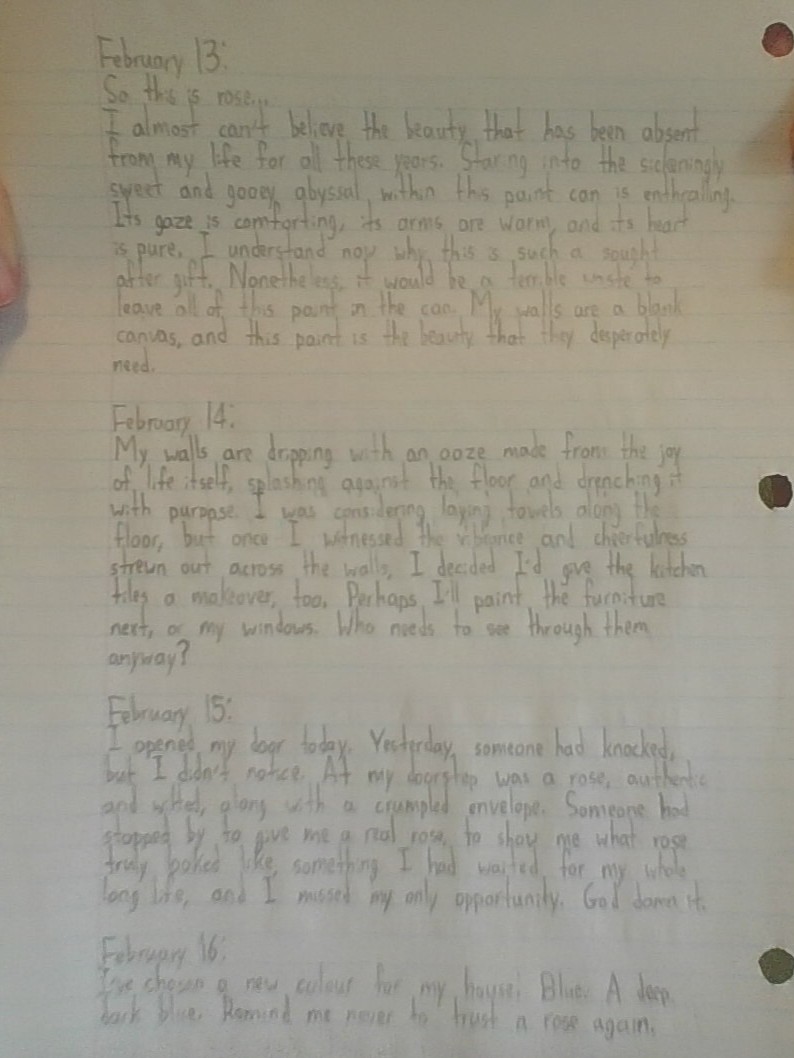 February 13:
So this is rose...
I almost can't believe the beauty that has been absent
from my life for all these years. Staring into the sickeningly
sweet and gooey abyssal within this paint can is enthralling.
Its gaze is comforting, its arms are warm, and its heart
is pure. I understand now why this is such a sought
after gift. Nonetheless, it would be a terrible waste to
leave all of this paint in the can. My walls are a blank
canvas, and this paint is the beauty that they desperately
need.
February 14:
My walls are dripping with an ooze made from the joy
of life itself, splashing against the floor and drenching it
with purpose. I was considering laying towels along the
floor, but once I witnessed the vibrance and cheerfulness
strewn out across the walls, I decided I'd give the kitchen
tiles a makeover, too. Perhaps I'll paint the furniture
next, or my windows. Who needs to see through them
anyway?
February 15:
I opened my door today. Yesterday, someone had knocked,
but I didn't notice. At my doorstep was a rose, authentic
and wilted, along with a crumpled envelope. Someone had
stopped by to give me a real rose, to show me what rose
truly looked like, something I had waited for my whole
long life, and I missed my only opportunity. God damn it.
February 16:
I've chosen a new colour for my house: Blue. A deep
dark blue. Remind me never to trust a rose again.